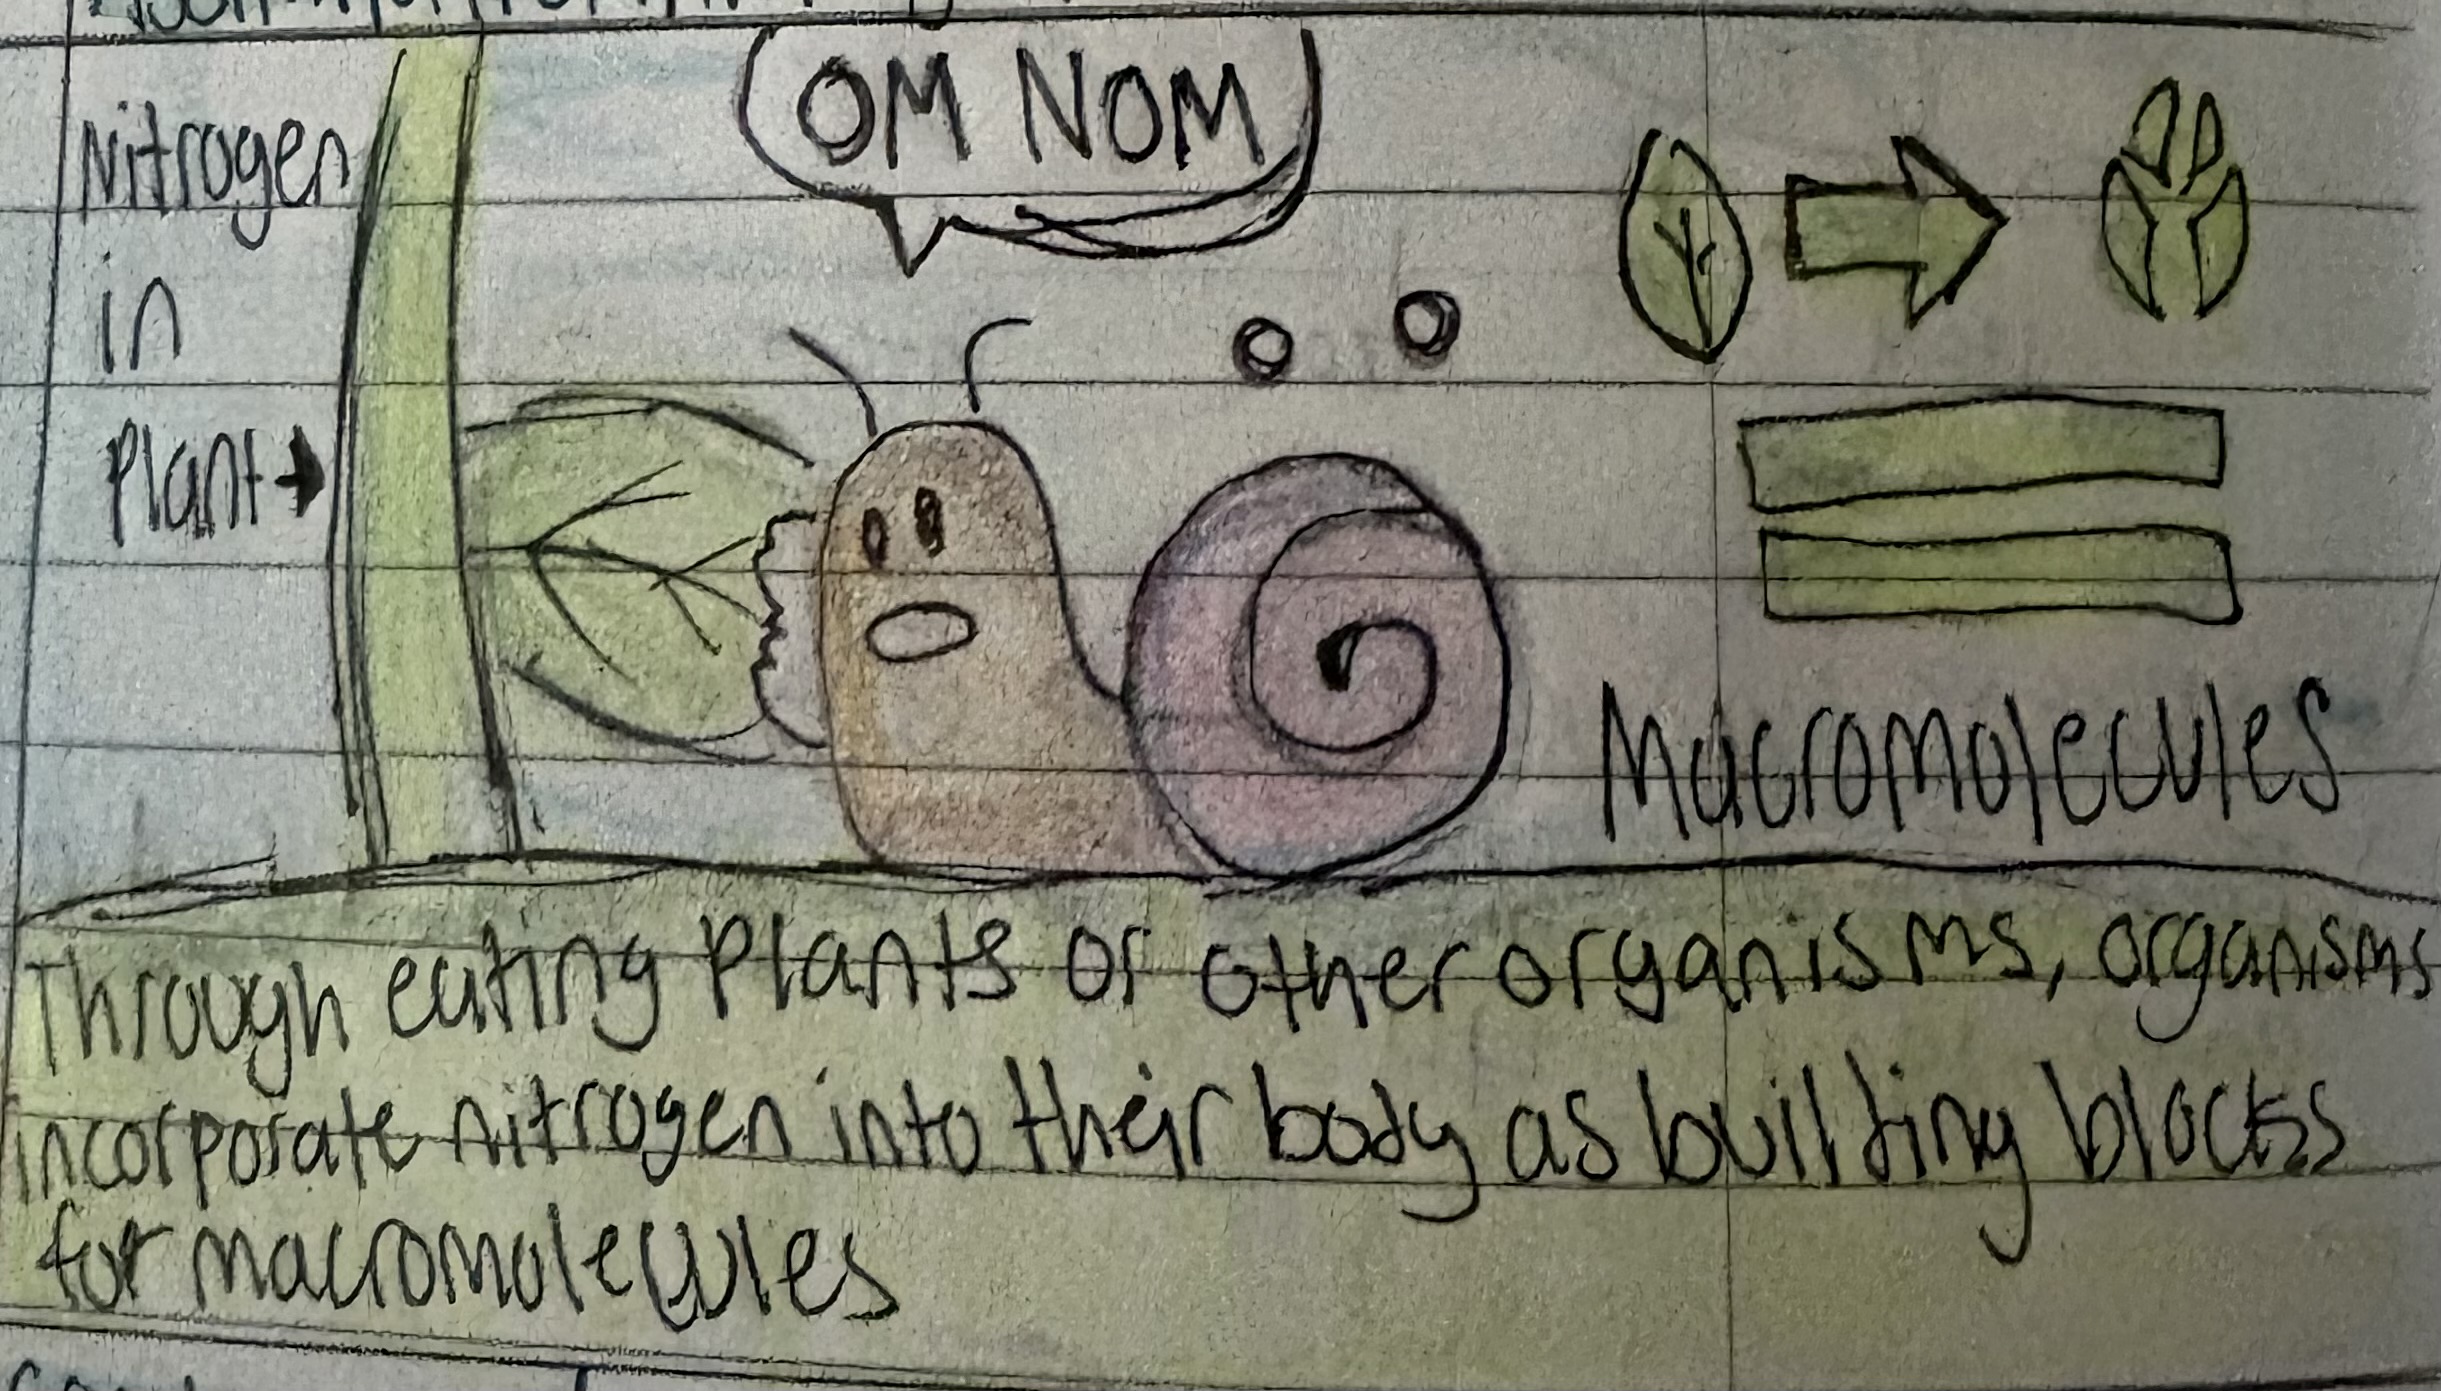 OM NOM
Nitrogen
in
Plant
Macromolecules
Through eating plants or other organisms, organisms
incorporate nitrogen into their body as builting blocks
for macromolecules